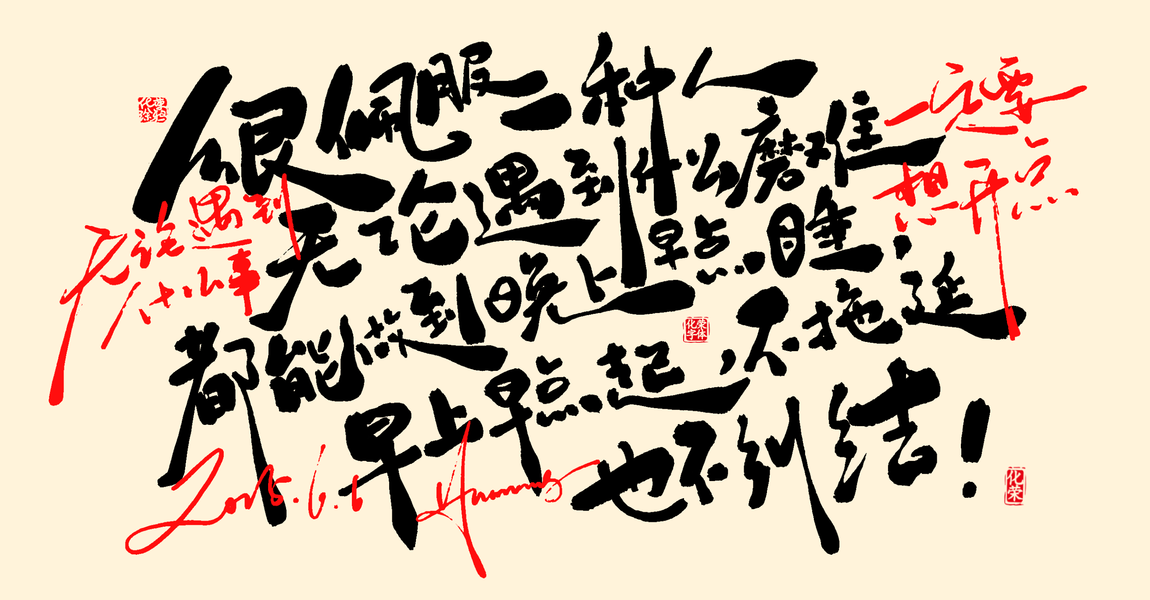 很佩服一种人
无论遇到什么磨难
都能做到晚上早点睡,
早上早点起,不拖延
也不纠结!
无论遇到
什么事
一定要
想开点
化荣